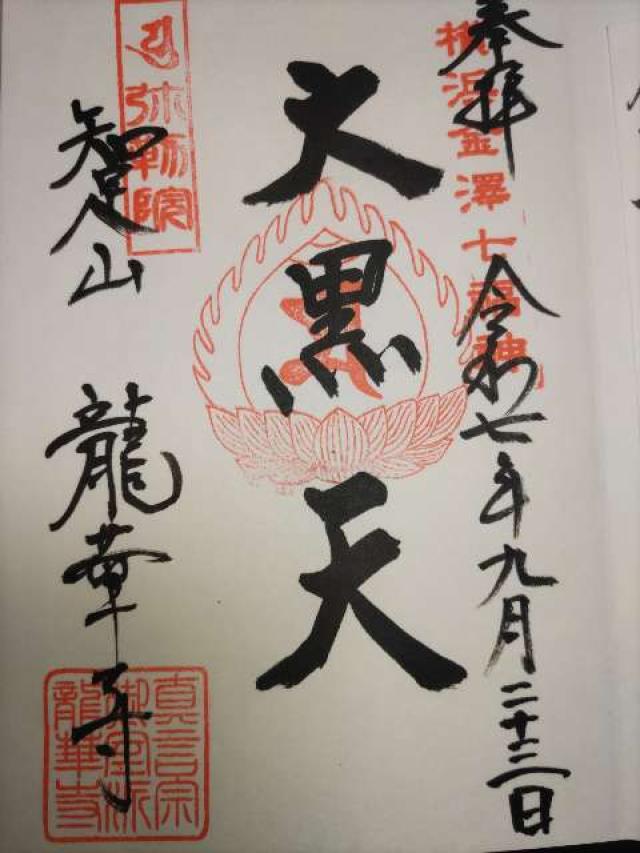 奉拝
横浜金澤七福神
令和七年九月二十三日
大黒天
弥勒院
智足山
龍華寺
真言宗
御室派
龍華寺